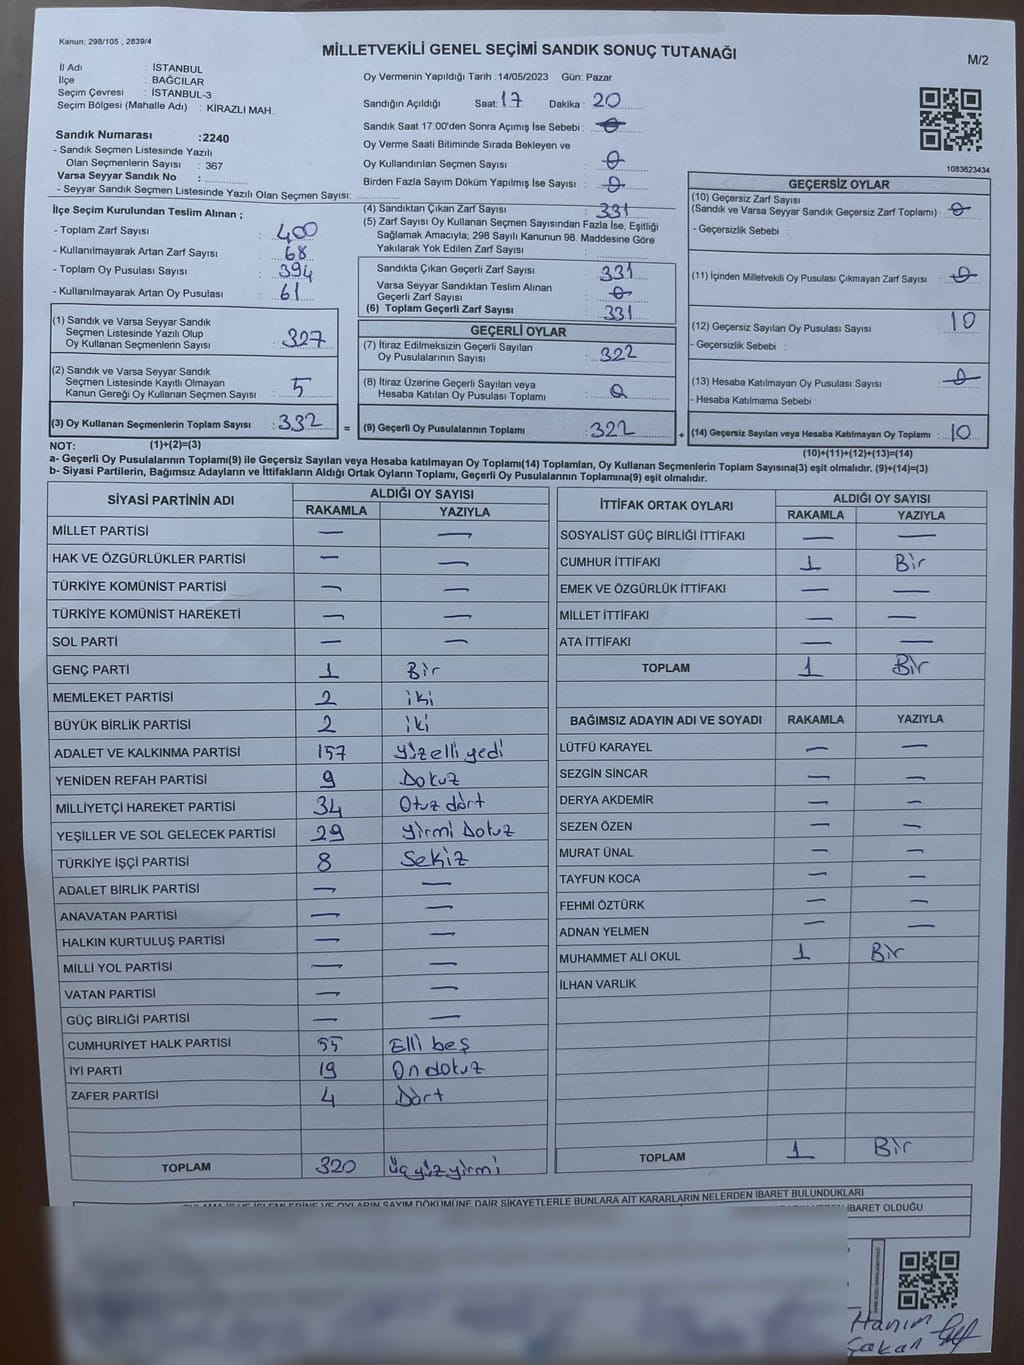 Kanun; 298/105 , 2839/4
MİLLETVEKİLİ GENEL SEÇİMİ SANDIK SONUÇ TUTANAĞI
M/2
İl Adı : İSTANBUL
İlçe : BAĞCILAR
Seçim Çevresi : İSTANBUL-3
Seçim Bölgesi (Mahalle Adı) : KİRAZLI MAH.
Sandık Numarası :2240
- Sandık Seçmen Listesinde Yazılı
Olan Seçmenlerin Sayısı : 367
Varsa Seyyar Sandık No :
- Seyyar Sandık Seçmen Listesinde Yazılı Olan Seçmen Sayısı:
Oy Vermenin Yapıldığı Tarih :14/05/2023 Gün: Pazar
Sandığın Açıldığı Saat: 17 Dakika : 20
Sandık Saat 17:00'den Sonra Açımış İse Sebebi : 0
Oy Verme Saati Bitiminde Sırada Bekleyen ve
Oy Kullandırılan Seçmen Sayısı : 0
Birden Fazla Sayım Döküm Yapılmış İse Sayısı : 0
1083623434
İlçe Seçim Kurulundan Teslim Alınan ;
- Toplam Zarf Sayısı : 400
- Kullanılmayarak Artan Zarf Sayısı : 68
- Toplam Oy Pusulası Sayısı : 394
- Kullanılmayarak Artan Oy Pusulası : 61
(1) Sandık ve Varsa Seyyar Sandık
Seçmen Listesinde Yazılı Olup
Oy Kullanan Seçmenlerin Sayısı : 327
(2) Sandık ve Varsa Seyyar Sandık
Seçmen Listesinde Kayıtlı Olmayan
Kanun Gereği Oy Kullanan Seçmen Sayısı : 5
(3) Oy Kullanan Seçmenlerin Toplam Sayısı : 332 =
(4) Sandıktan Çıkan Zarf Sayısı : 331
(5) Zarf Sayısı Oy Kullanan Seçmen Sayısından Fazla İse, Eşitliği
Sağlamak Amacıyla; 298 Sayılı Kanunun 98. Maddesine Göre
Yakılarak Yok Edilen Zarf Sayısı :
Sandıkta Çıkan Geçerli Zarf Sayısı : 331
Varsa Seyyar Sandıktan Teslim Alınan
Geçerli Zarf Sayısı : 0
(6) Toplam Geçerli Zarf Sayısı : 331
GEÇERLİ OYLAR
(7) İtiraz Edilmeksizin Geçerli Sayılan
Oy Pusulalarının Sayısı : 322
(8) İtiraz Üzerine Geçerli Sayılan veya
Hesaba Katılan Oy Pusulası Toplamı : 0
(9) Geçerli Oy Pusulalarının Toplamı : 322 +
GEÇERSİZ OYLAR
(10) Geçersiz Zarf Sayısı
(Sandık ve Varsa Seyyar Sandık Geçersiz Zarf Toplamı) : 0
- Geçersizlik Sebebi :
(11) İçinden Milletvekili Oy Pusulası Çıkmayan Zarf Sayısı : 0
(12) Geçersiz Sayılan Oy Pusulası Sayısı : 10
- Geçersizlik Sebebi :
(13) Hesaba Katılmayan Oy Pusulası Sayısı : 0
- Hesaba Katılmama Sebebi :
(14) Geçersiz Sayılan veya Hesaba Katılmayan Oy Toplamı : 10
NOT: (1)+(2)=(3) (10)+(11)+(12)+(13)=(14)
a- Geçerli Oy Pusulaları Toplamı(9) ile Geçersiz Sayılan veya Hesaba katılmayan Oy Toplamı(14) Toplamları, Oy Kullanan Seçmenlerin Toplam Sayısına(3) eşit olmalıdır. (9)+(14)=(3)
b- Siyasi Partilerin, Bağımsız Adayların ve İttifakların Aldığı Ortak Oyların Toplamı, Geçerli Oy Pusulalarının Toplamına(9) eşit olmalıdır.
SİYASİ PARTİNİN ADI ALDIĞI OY SAYISI
RAKAMLA YAZIYLA
MİLLET PARTİSİ — —
HAK VE ÖZGÜRLÜKLER PARTİSİ — —
TÜRKİYE KOMÜNİST PARTİSİ — —
TÜRKİYE KOMÜNİST HAREKETİ — —
SOL PARTİ — —
GENÇ PARTİ 1 Bir
MEMLEKET PARTİSİ 2 iki
BÜYÜK BİRLİK PARTİSİ 2 iki
ADALET VE KALKINMA PARTİSİ 157 yüzelli yedi
YENİDEN REFAH PARTİSİ 9 Dokuz
MİLLİYETÇİ HAREKET PARTİSİ 34 Otuz dört
YEŞİLLER VE SOL GELECEK PARTİSİ 29 yirmi Dokuz
TÜRKİYE İŞÇİ PARTİSİ 8 Sekiz
ADALET BİRLİK PARTİSİ — —
ANAVATAN PARTİSİ — —
HALKIN KURTULUŞ PARTİSİ — —
MİLLİ YOL PARTİSİ — —
VATAN PARTİSİ — —
GÜÇ BİRLİĞİ PARTİSİ — —
CUMHURİYET HALK PARTİSİ 55 Elli beş
İYİ PARTİ 19 Ondokuz
ZAFER PARTİSİ 4 Dört
TOPLAM 320 üçyüzyirmi
İTTİFAK ORTAK OYLARI ALDIĞI OY SAYISI
RAKAMLA YAZIYLA
SOSYALİST GÜÇ BİRLİĞİ İTTİFAKI — —
CUMHUR İTTİFAKI 1 Bir
EMEK VE ÖZGÜRLÜK İTTİFAKI — —
MİLLET İTTİFAKI — —
ATA İTTİFAKI — —
TOPLAM 1 Bir
BAĞIMSIZ ADAYIN ADI VE SOYADI RAKAMLA YAZIYLA
LÜTFÜ KARAYEL — —
SEZGİN SİNCAR — —
DERYA AKDEMİR — —
SEZEN ÖZEN — —
MURAT ÜNAL — —
TAYFUN KOCA — —
FEHMİ ÖZTÜRK — —
ADNAN YELMEN — —
MUHAMMET ALİ OKUL 1 Bir
İLHAN VARLIK
TOPLAM 1 Bir
OYLARIN SAYIM DÖKÜMÜNE DAİR ŞİKAYETLERLE BUNLARA AİT KARARLARIN NELERDEN İBARET BULUNDUKLARI
İBARET OLDUĞU
Hanım
Çakan